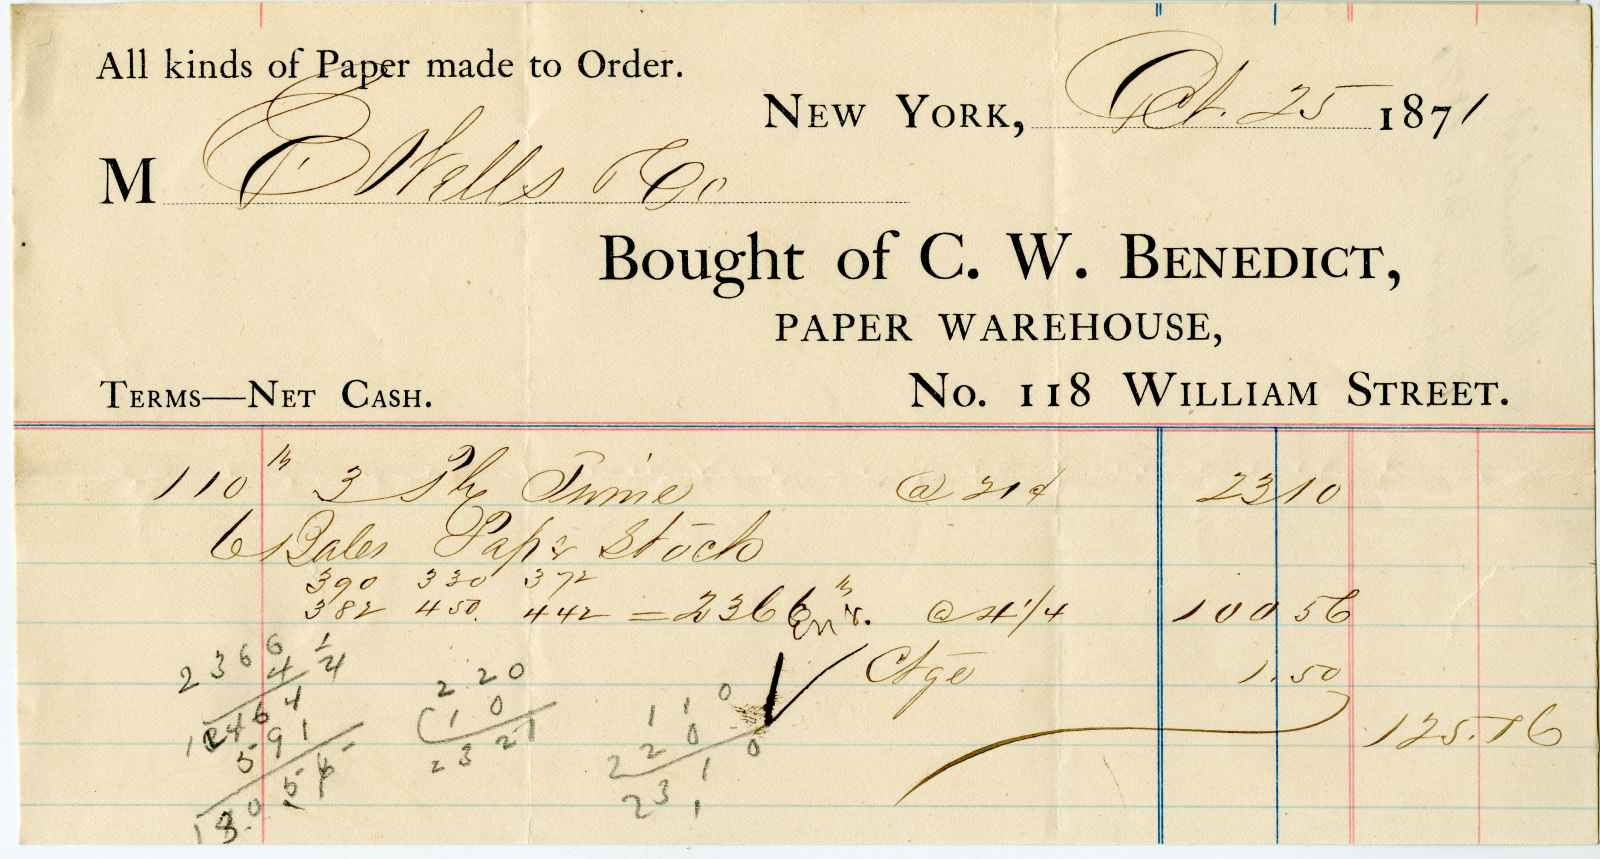 All kinds of Paper made to Order.
New York, Oct. 25 1871
M E Wells & Co
Bought of C. W. Benedict,
PAPER WAREHOUSE,
Terms—Net Cash.
No. 118 William Street.
110 lb 3 Ply Twine @ 21¢ 23 10
6 Bales Paper Stock
390 330 372
382 450. 442 = 2366 lb @ 4 1/4 100 56
Ctge 1.50
125.16
2366
4 1/4
591
2 20
1 0
23 21
1 1 0
2 2 0 0
2 3 1
1